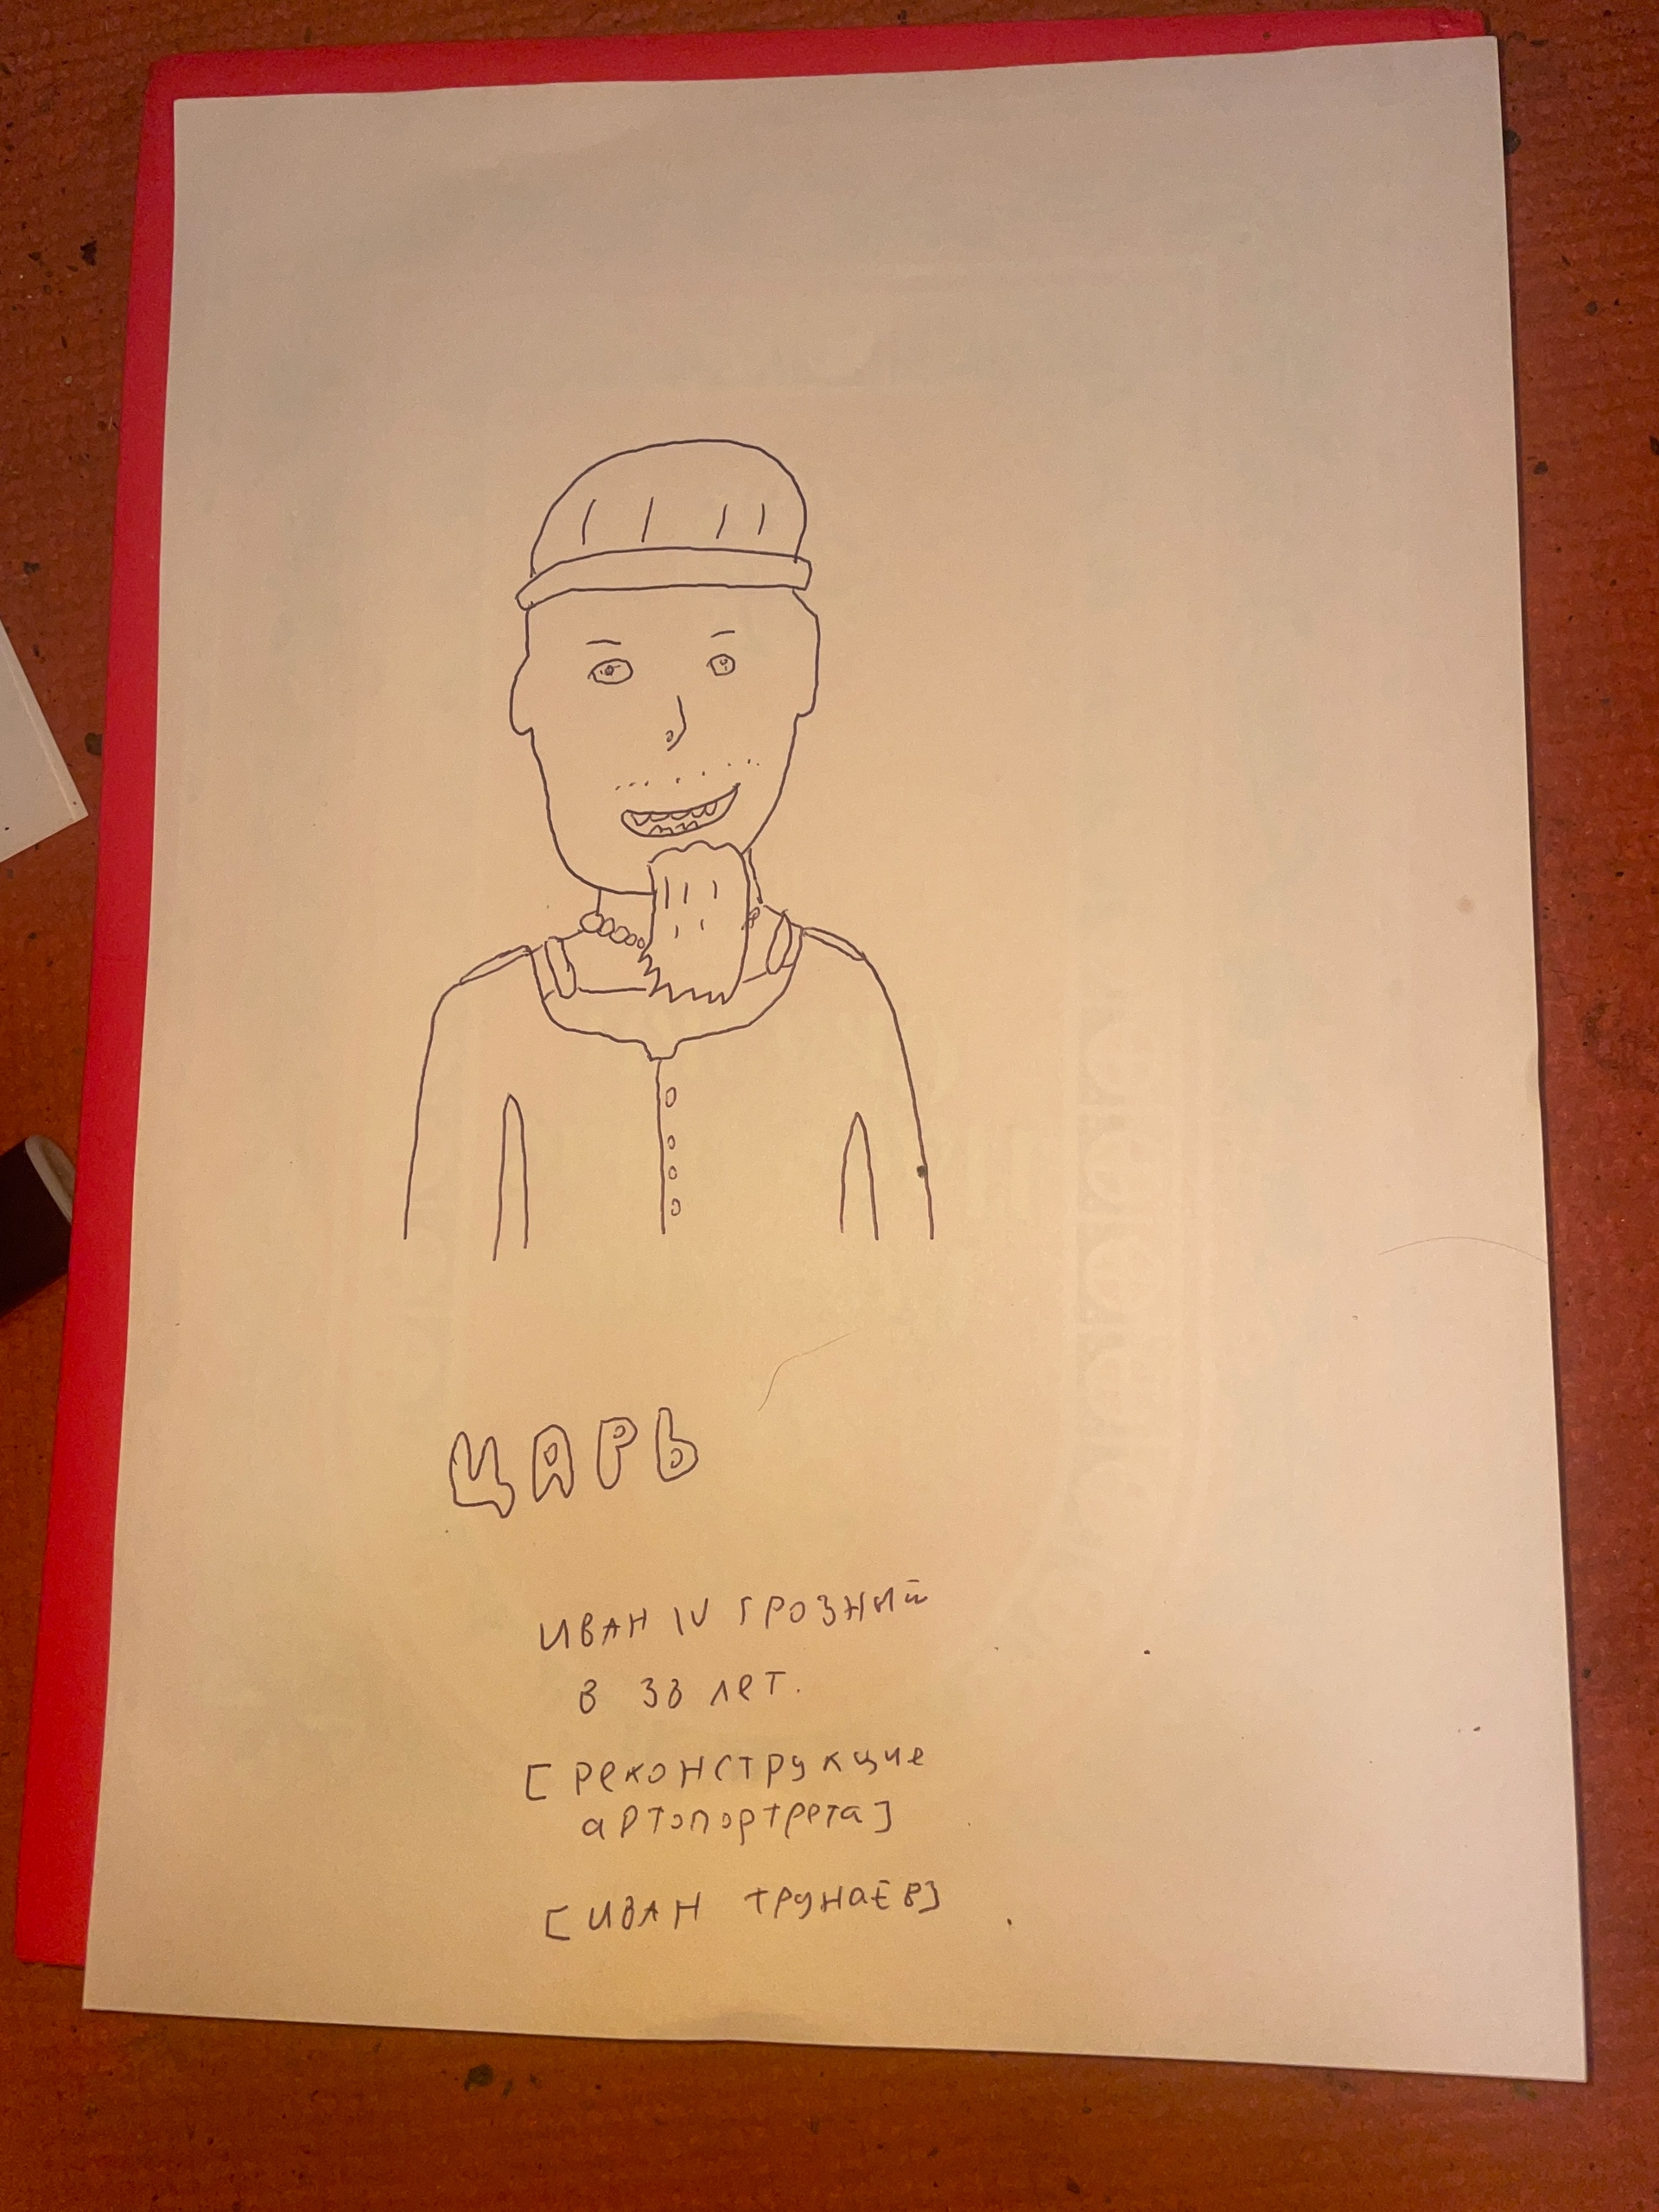 ЦАРЬ
ИВАН IV ГРОЗНЫЙ
В 38 лет.
[реконструкцие
артопортрета]
[ИВАН ТРУНаЕВ]